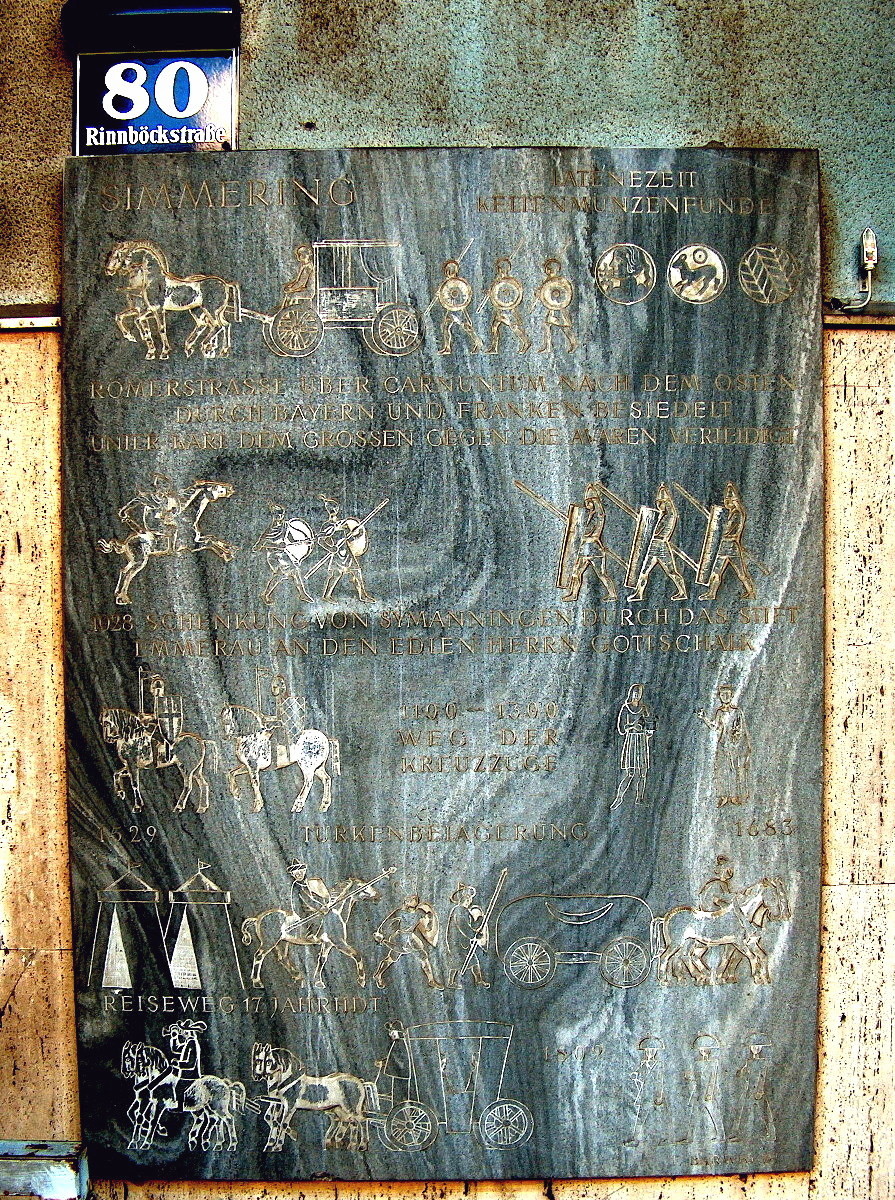 80
Rinnböckstraße
SIMMERING
LATENEZEIT
KELTENMÜNZENFUNDE
RÖMERSTRASSE ÜBER CARNUNTUM NACH DEM OSTEN
DURCH BAYERN UND FRANKEN BESIEDELT
UNTER KARL DEM GROSSEN GEGEN DIE AWAREN VERTEIDIGT
1028 SCHENKUNG VON SYMANNINGEN DURCH DAS STIFT
EMMERAU AN DEN EDLEN HERRN GOTTSCHALK
1100 — 1300
WEG DER
KREUZZÜGE
1529 TÜRKENBELAGERUNG 1683
REISEWEG 17. JAHRHDT.
1809